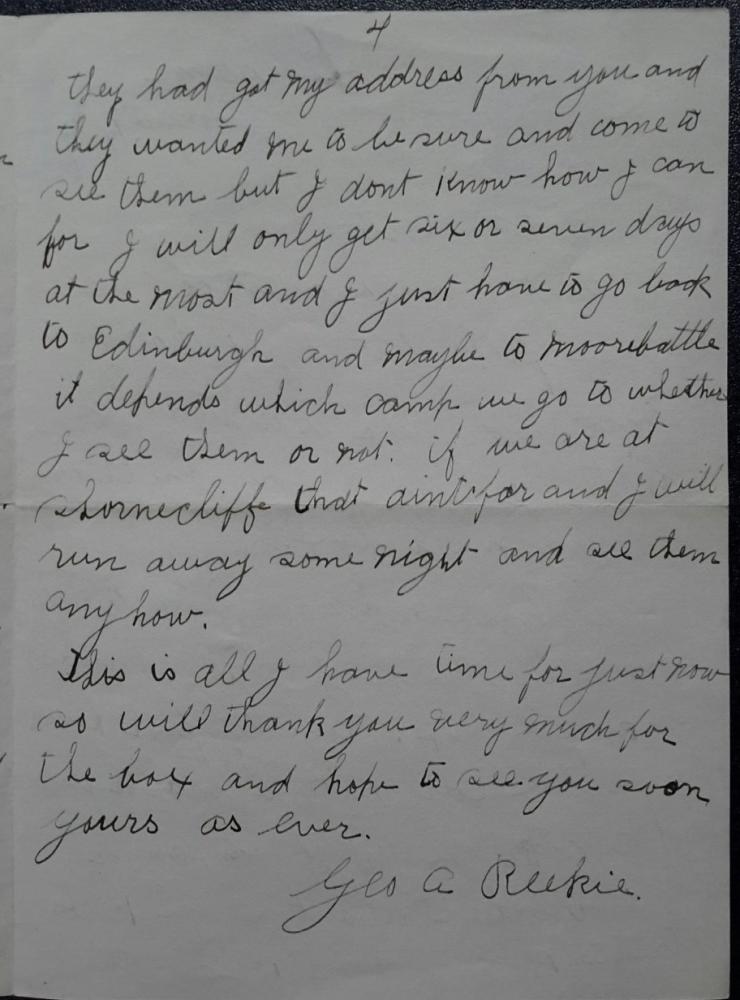 4
they had got my address from you and
they wanted me to be sure and come to
see them but I dont know how I can
for I will only get six or seven days
at the most and I just have to go back
to Edinburgh and maybe to moorebattle
it depends which camp we go to whether
I see them or not. if we are at
shornecliffe that aint far and I will
run away some night and see them
any how.
This is all I have time for just now
so will thank you very much for
the box and hope to see you soon
yours as ever.
Geo A Reekie.